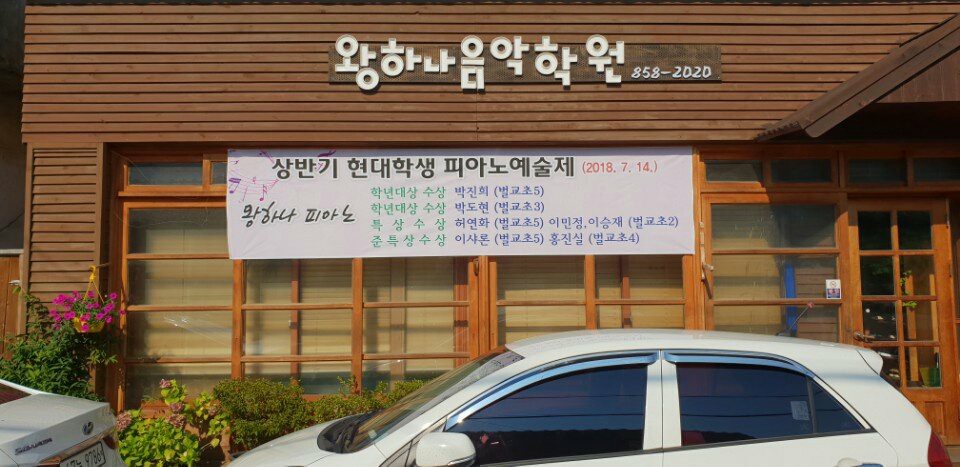 왕하나음악학원 858-2020
상반기 현대학생 피아노예술제 (2018. 7. 14.)
왕하나 피아노
학년대상 수상 박진희 (벌교초5)
학년대상 수상 박도현 (벌교초3)
특 상 수 상 허연화 (벌교초5) 이민정,이승재 (벌교초2)
준 특 상 수 상 이샤론 (벌교초5) 홍진실 (벌교초4)